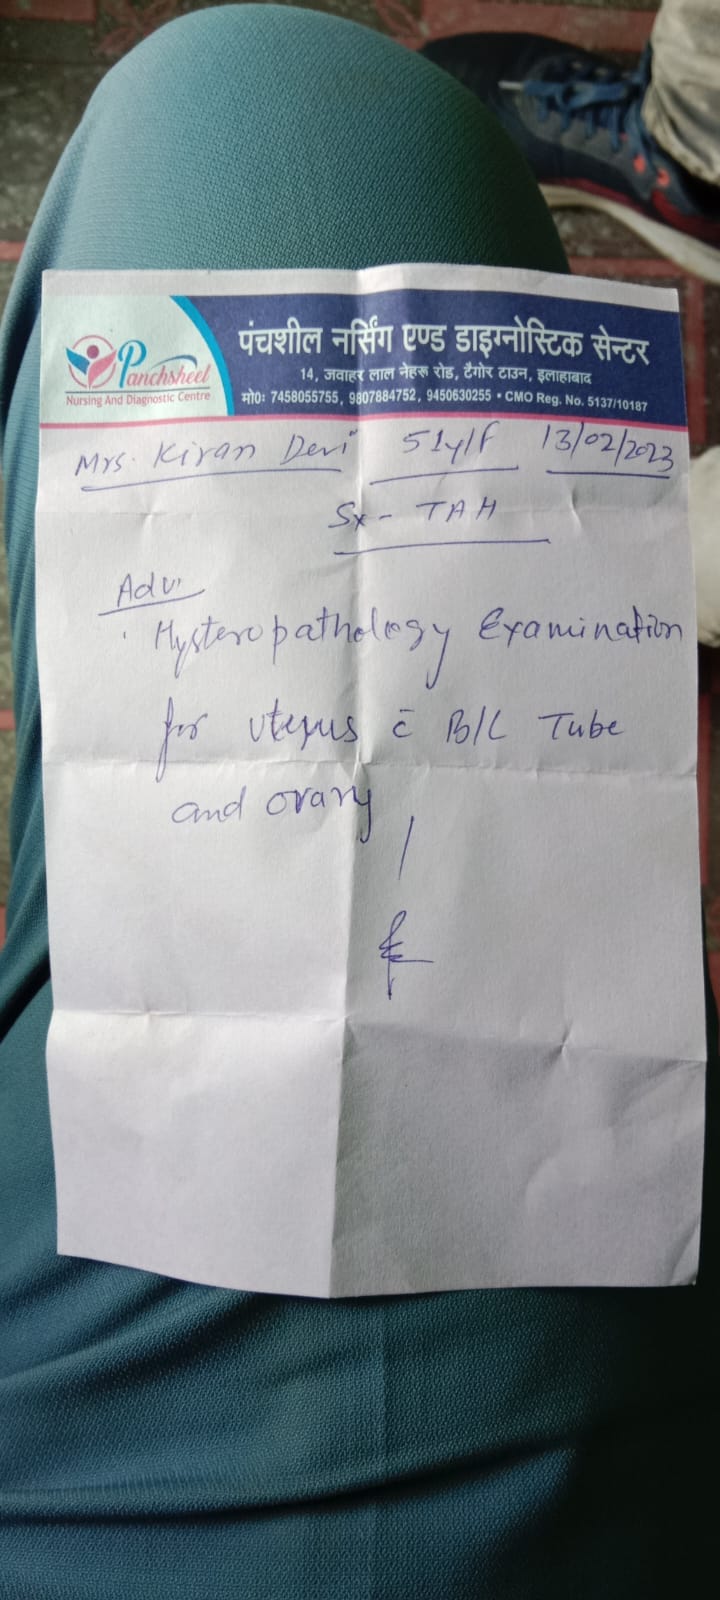 पंचशील नर्सिंग एण्ड डाइग्नोस्टिक सेन्टर
Panchsheel
Nursing And Diagnostic Centre
14, जवाहर लाल नेहरू रोड, टैगोर टाउन, इलाहाबाद
मो0: 7458055755, 9807884752, 9450630255 • CMO Reg. No. 5137/10187
Mrs. Kiran Devi 51y/F 13/02/2023
Sx - TAH
Adv.
Hysteropathology Examination
for uterus c̄ B/L Tube
and ovary